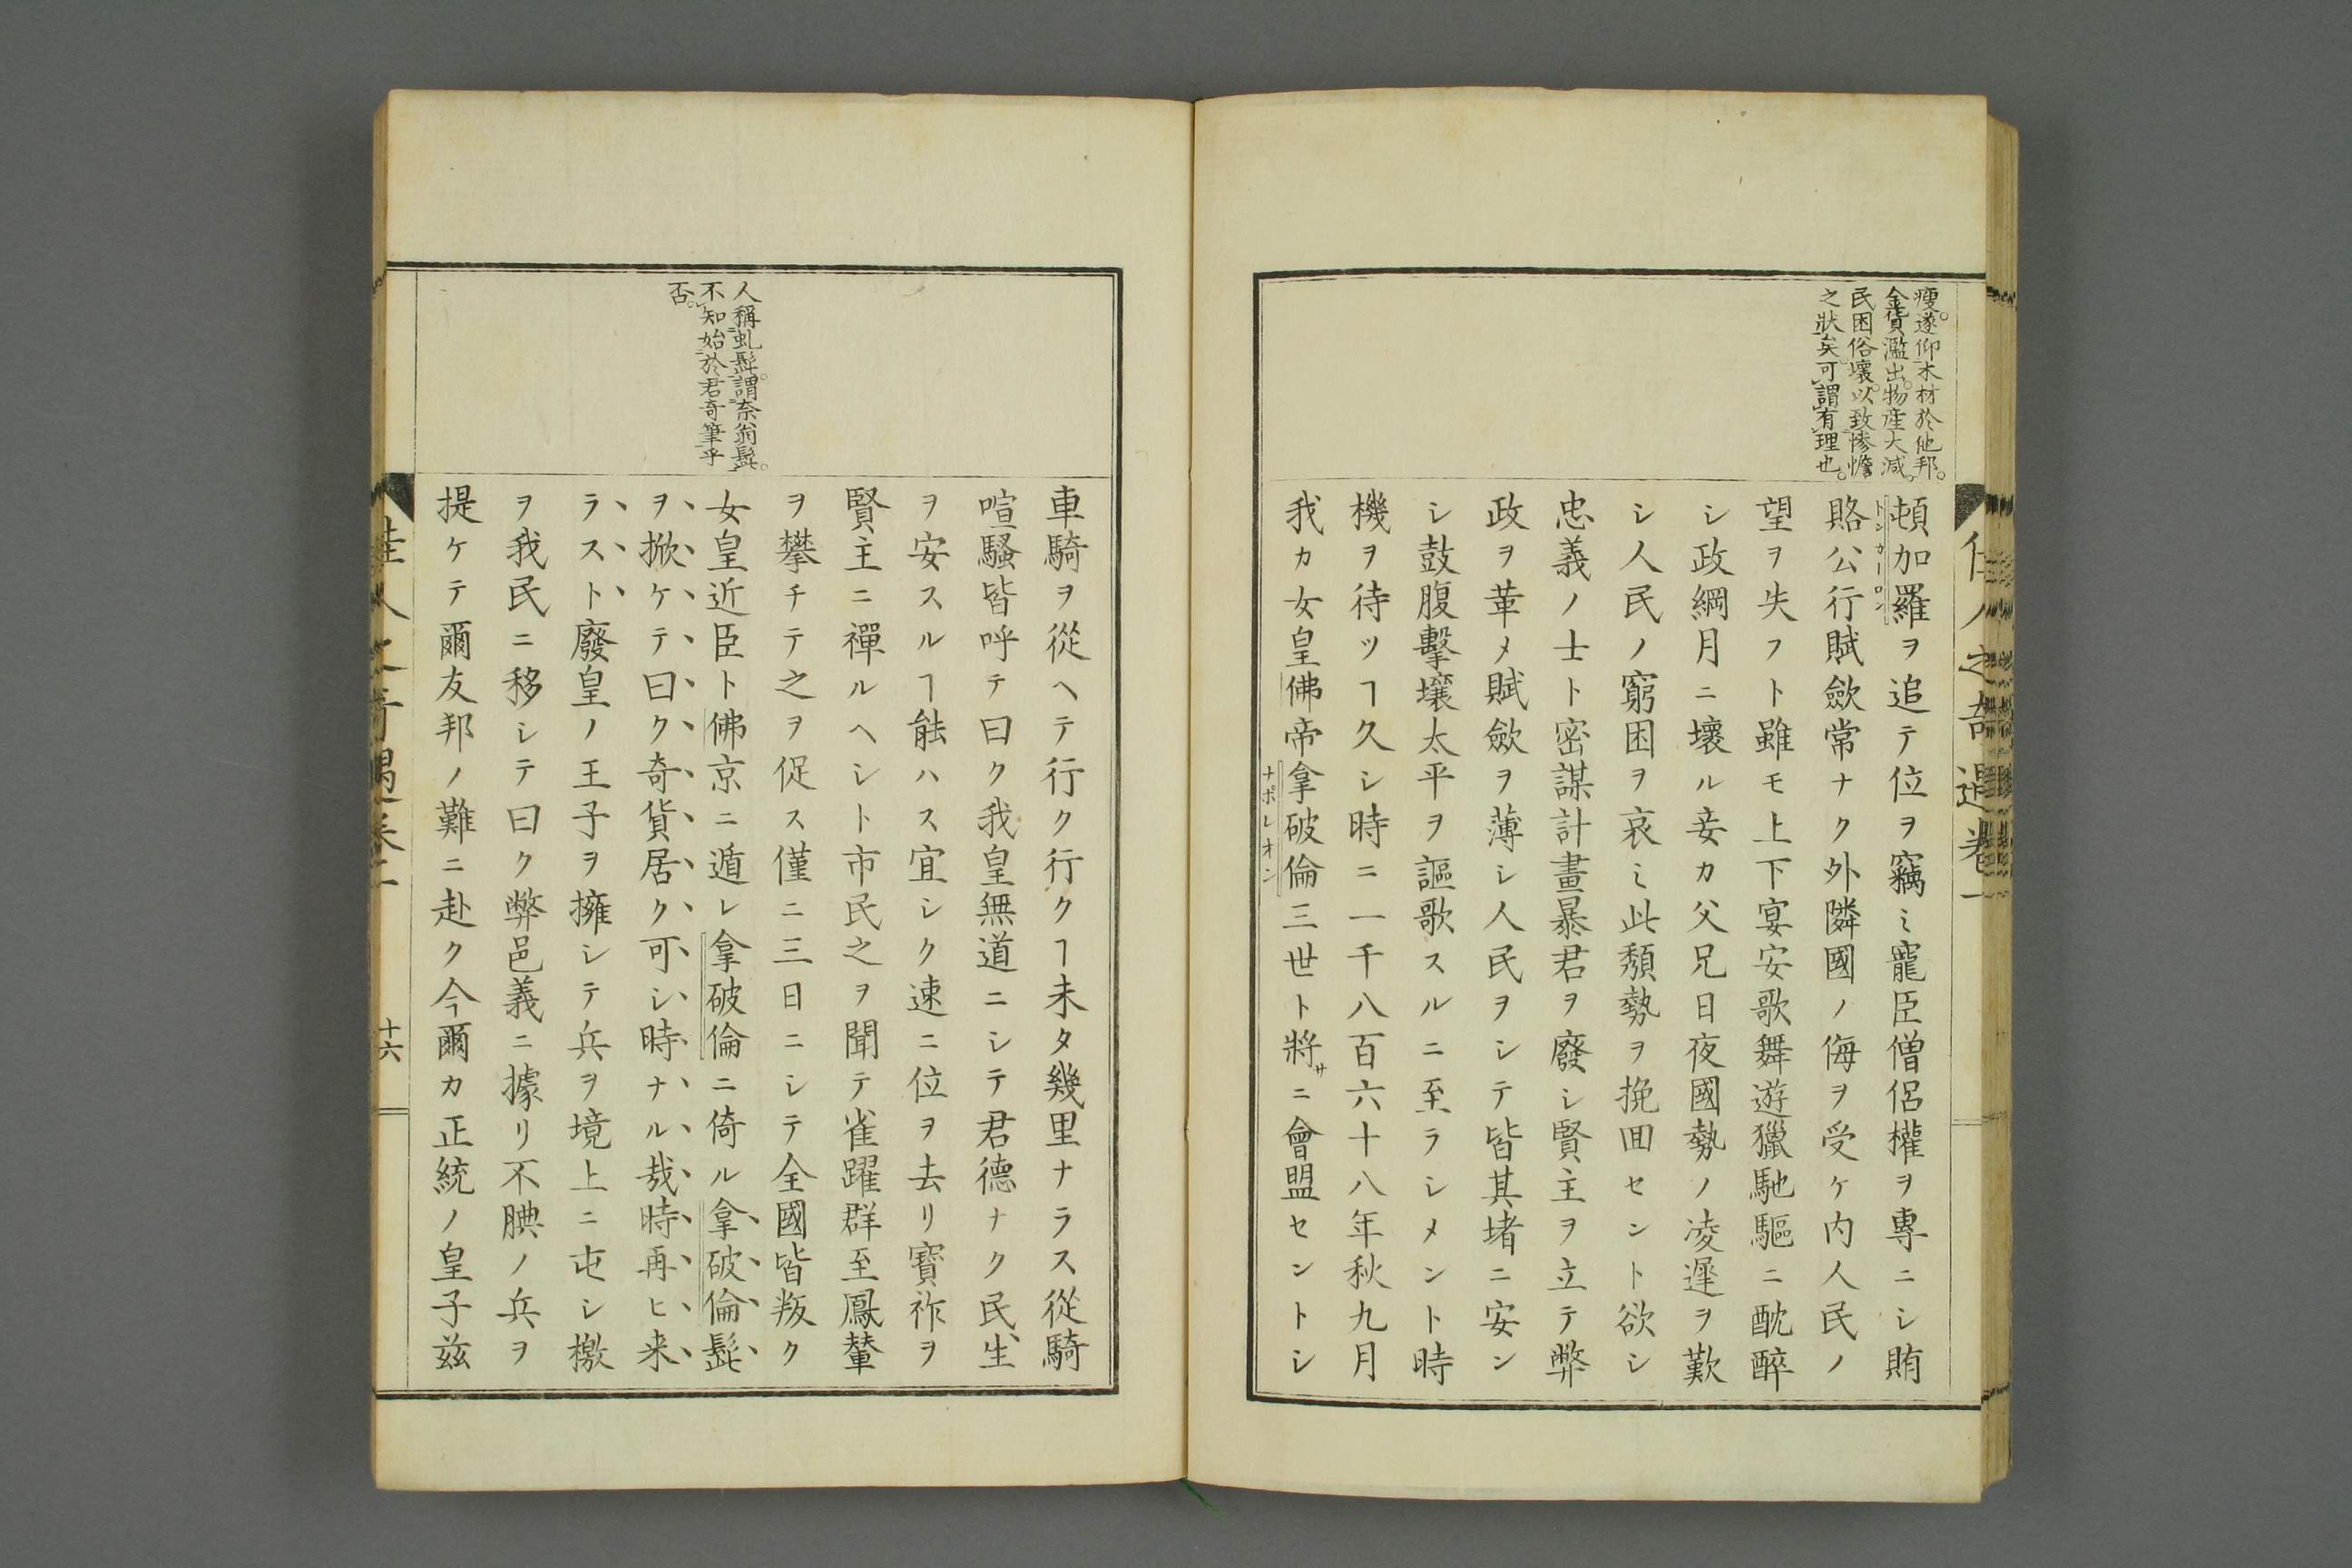 佳人之奇遇卷一
瘦。遂仰木材於他邦。
金貨濫出。物産大減。
民困俗壞。以致慘憺
之狀矣。可謂有理也。
頓加羅ヲ追テ位ヲ竊ミ寵臣僧侶權ヲ專ニシ賄
トンカーロン
賂公行賦歛常ナク外隣國ノ侮ヲ受ケ内人民ノ
望ヲ失フト雖モ上下宴安歌舞遊獵馳驅ニ酖醉
シ政綱月ニ壞ル妾カ父兄日夜國勢ノ凌遲ヲ歎
シ人民ノ窮困ヲ哀ミ此頽勢ヲ挽囬セント欲シ
忠義ノ士ト密謀計畫暴君ヲ廢シ賢主ヲ立テ弊
政ヲ革メ賦歛ヲ薄シ人民ヲシテ皆其堵ニ安ン
シ鼓腹擊壤太平ヲ謳歌スルニ至ラシメント時
機ヲ待ツヿ久シ時ニ一千八百六十八年秋九月
我カ女皇佛帝拿破倫三世ト將サニ會盟セントシ
ナポレオン
人稱虬髭。謂奈翁髭。
不知始於君奇筆乎
否。
車騎ヲ從ヘテ行ク行クヿ未タ幾里ナラス從騎
喧騷皆呼テ曰ク我皇無道ニシテ君德ナク民生
ヲ安スルヿ能ハス宜シク速ニ位ヲ去リ寶祚ヲ
賢主ニ禪ルヘシト市民之ヲ聞テ雀躍群至鳳輦
ヲ攀チテ之ヲ促ス僅ニ三日ニシテ全國皆叛ク
女皇近臣ト佛京ニ遁レ拿破倫ニ倚ル拿破倫髭
ヲ掀ケテ曰ク奇貨居ク可シ時ナル哉時再ヒ来
ラスト廢皇ノ王子ヲ擁シテ兵ヲ境上ニ屯シ檄
ヲ我民ニ移シテ曰ク弊邑義ニ據リ不腆ノ兵ヲ
提ケテ爾友邦ノ難ニ赴ク今爾カ正統ノ皇子茲
佳人之奇遇卷一
十六